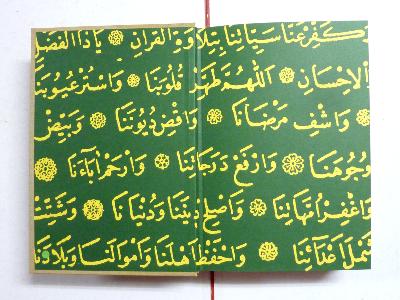 وَكَفِّرْ عَنَّا سَيِّاٰتِنَا بِتِلَاوَةِ الْقُرْاٰنِ يَا ذَا الْفَضْلِ
وَالْاِحْسَانِ ۞ اَللّٰهُمَّ طَهِّرْ قُلُوبَنَا ۞ وَاسْتُرْ عُيُوبَنَا
۞ وَاشْفِ مَرْضَانَا ۞ وَاقْضِ دُيُونَنَا ۞ وَبَيِّضْ
وُجُوهَنَا ۞ وَارْفَعْ دَرَجَاتِنَا ۞ وَارْحَمْ اٰبَاءَنَا ۞
وَاغْفِرْ اُمَّهَاتِنَا ۞ وَاَصْلِحْ دِينَنَا وَدُنْيَانَا ۞ وَشَتِّتْ
شَمْلَ اَعْدَائِنَا ۞ وَاحْفَظْ اَهْلَنَا وَاَمْوَالَنَا وَبِلَادَنَا